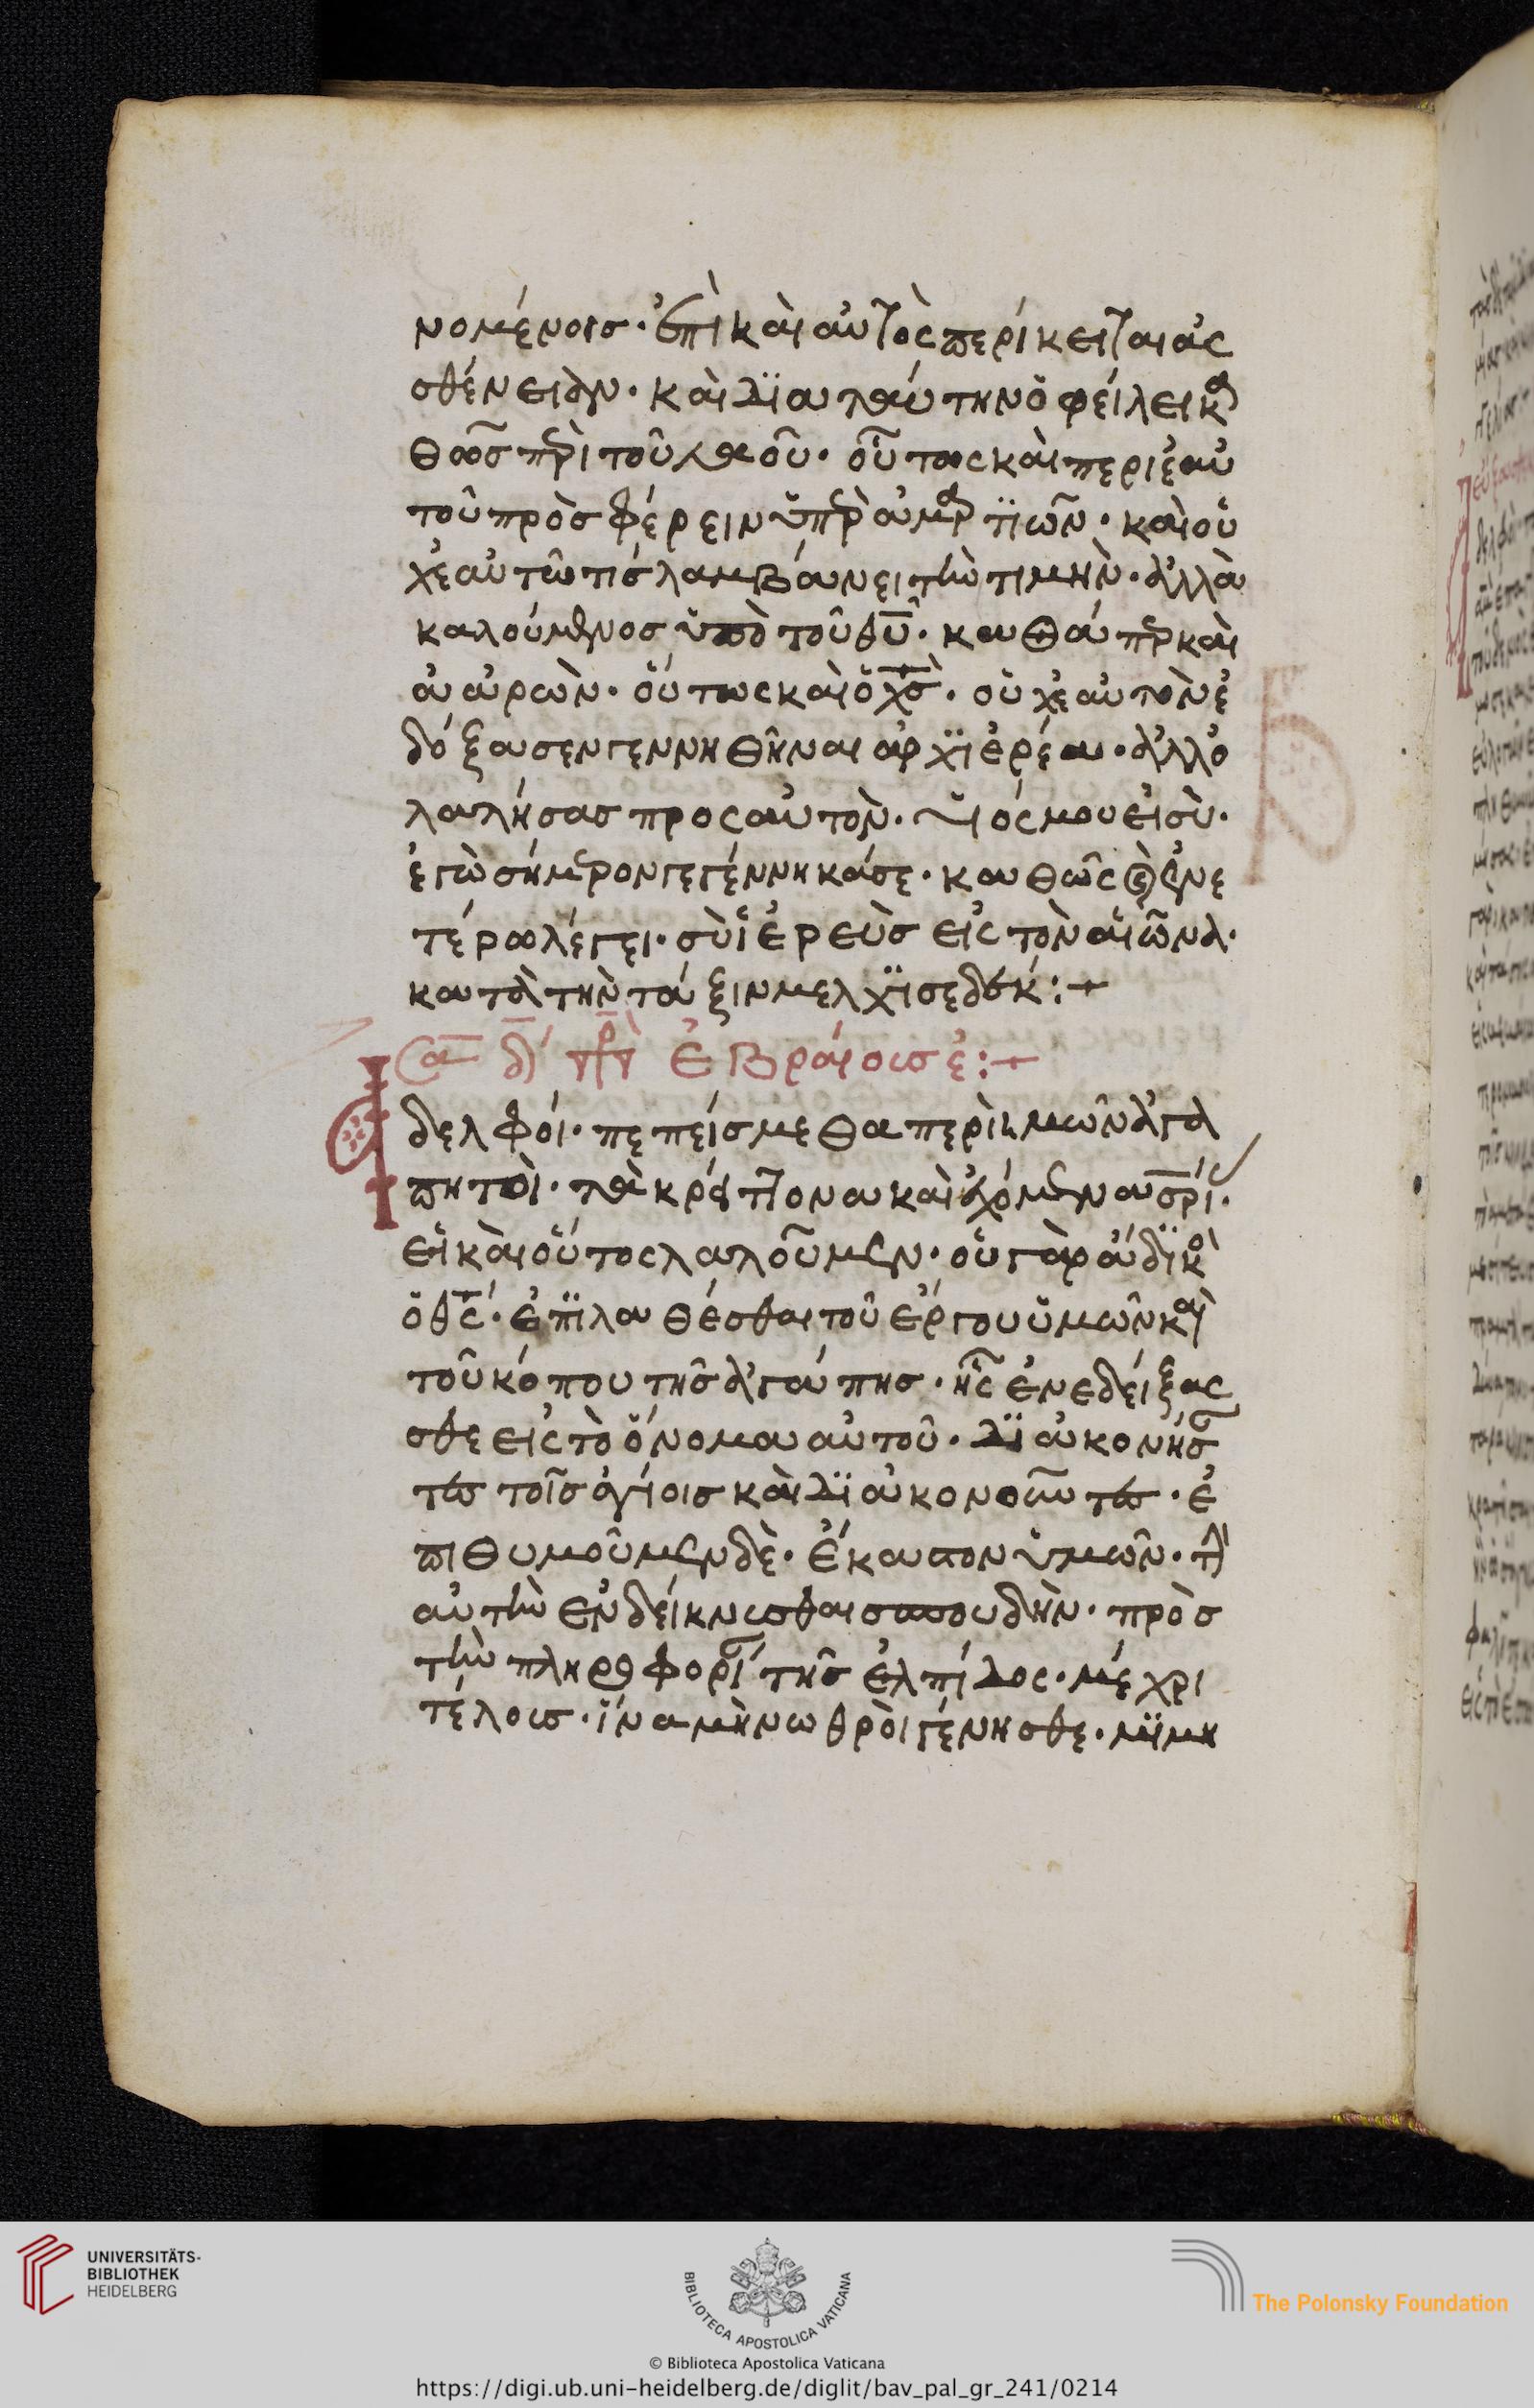 νομένοις· ἐπὶ καὶ αὐτὸς περίκειται ἀσ
σθένειαν· καὶ διὰ ταύτην ὀφείλει κα
θὼς περὶ τοῦ λαοῦ· οὕτως καὶ περὶ ἑαυ
τοῦ προσφέρειν ὑπὲρ ἁμαρτιῶν· καὶ οὐ
χ ἑαυτῶ τίς λαμβάνει τὴν τιμὴν· ἀλλὰ
καλούμενος ὑπὸ τοῦ θυ· καθάπερ καὶ
ἀαρὼν· οὕτως καὶ ὁ χς· οὐχ ἑαυτὸν ἐ
δόξασεν γεννηθῆναι ἀρχϊερέα· ἀλλ ὁ
λαλήσας προς αὐτὸν· υἱός μου εἶ σὺ·
ἐγὼ σήμερον γεγέννηκά σε· καθὼς καὶ ἐν ἑ
τέρω λέγει· σὺ ἱἐρεὺς εἰς τὸν αἰῶνα·
κατὰ τὴν τάξιν μελχϊσεδέκ:+
Σα δ πρ ἑβραίους ἑ:+
Ἀδελφοί· πεπείσμεθα περὶ ὑμῶν ἀγα
πητοὶ· τὰ κρείττονα καὶ ἐχόμενα σρί·
εἰ καὶ οὕτος λαλοῦμεν· οὐ γὰρ ἄδϊκο
ὁ θς· ἐπϊλαθέσθαι τοῦ ἔργου ὑμῶν καὶ
τοῦ κόπου τῆς ἀγάπης· ἧς ἐνεδείξασ
σθε εἰς τὸ ὄνομα αὐτοῦ· δϊακονήσ
τες τοῖς ἁγίοις καὶ δϊακονοῦντες· ἐ
πιθυμοῦμεν δὲ· ἕκαστον ὑμῶν· τὴν
αὐτὴν ἐνδείκνυσθαι σπουδὴν· πρὸς
τὴν πληροφορί τῆς ἐλπίδος· μέχρι
τέλους· ἵνα μὴ νωθρὸι γένησθε· μϊμη
UNIVERSITÄTS-
BIBLIOTHEK
HEIDELBERG
BIBLIOTECA APOSTOLICA VATICANA
The Polonsky Foundation
© Biblioteca Apostolica Vaticana
https://digi.ub.uni-heidelberg.de/diglit/bav_pal_gr_241/0214